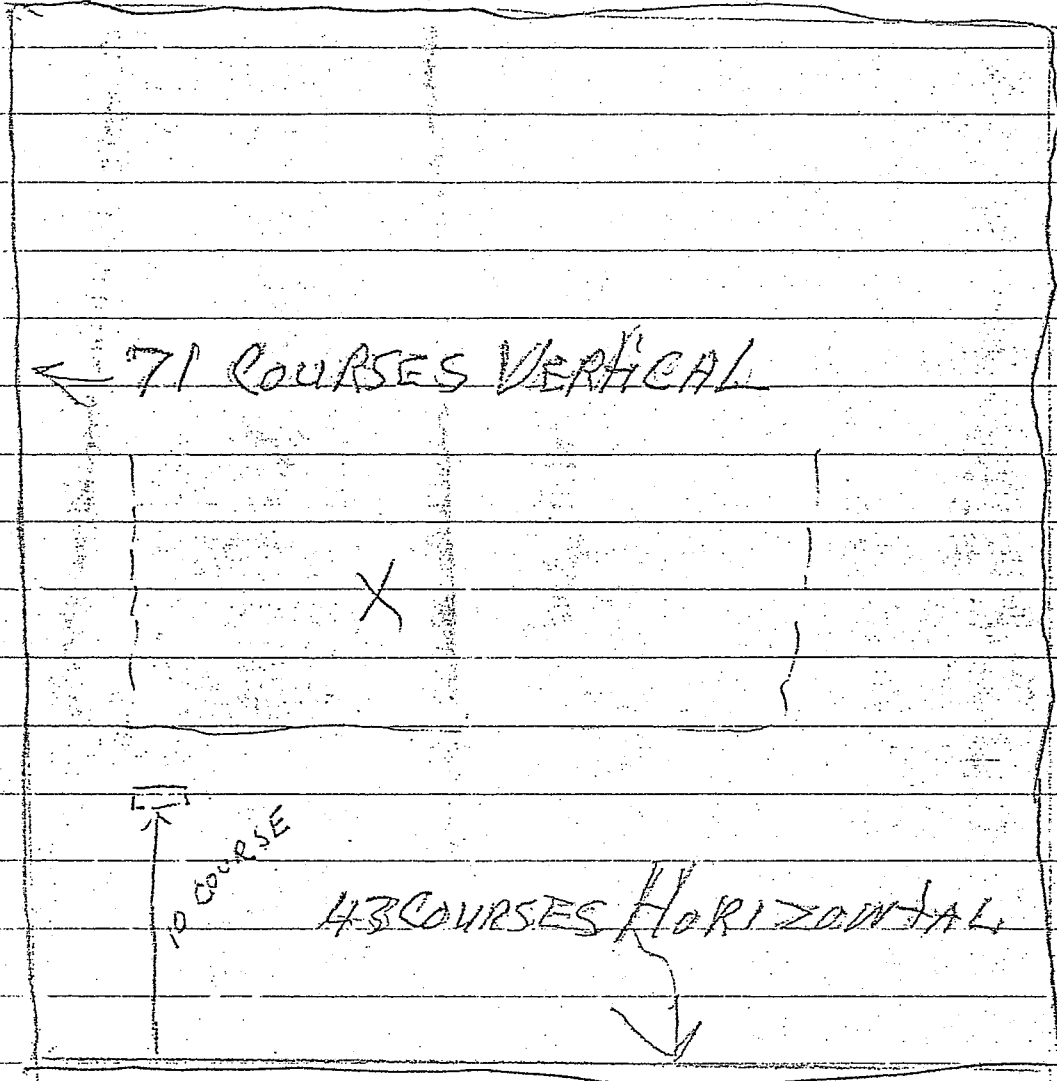 71 COURSES VERTICAL
X
10 COURSE
43 COURSES HORIZONTAL